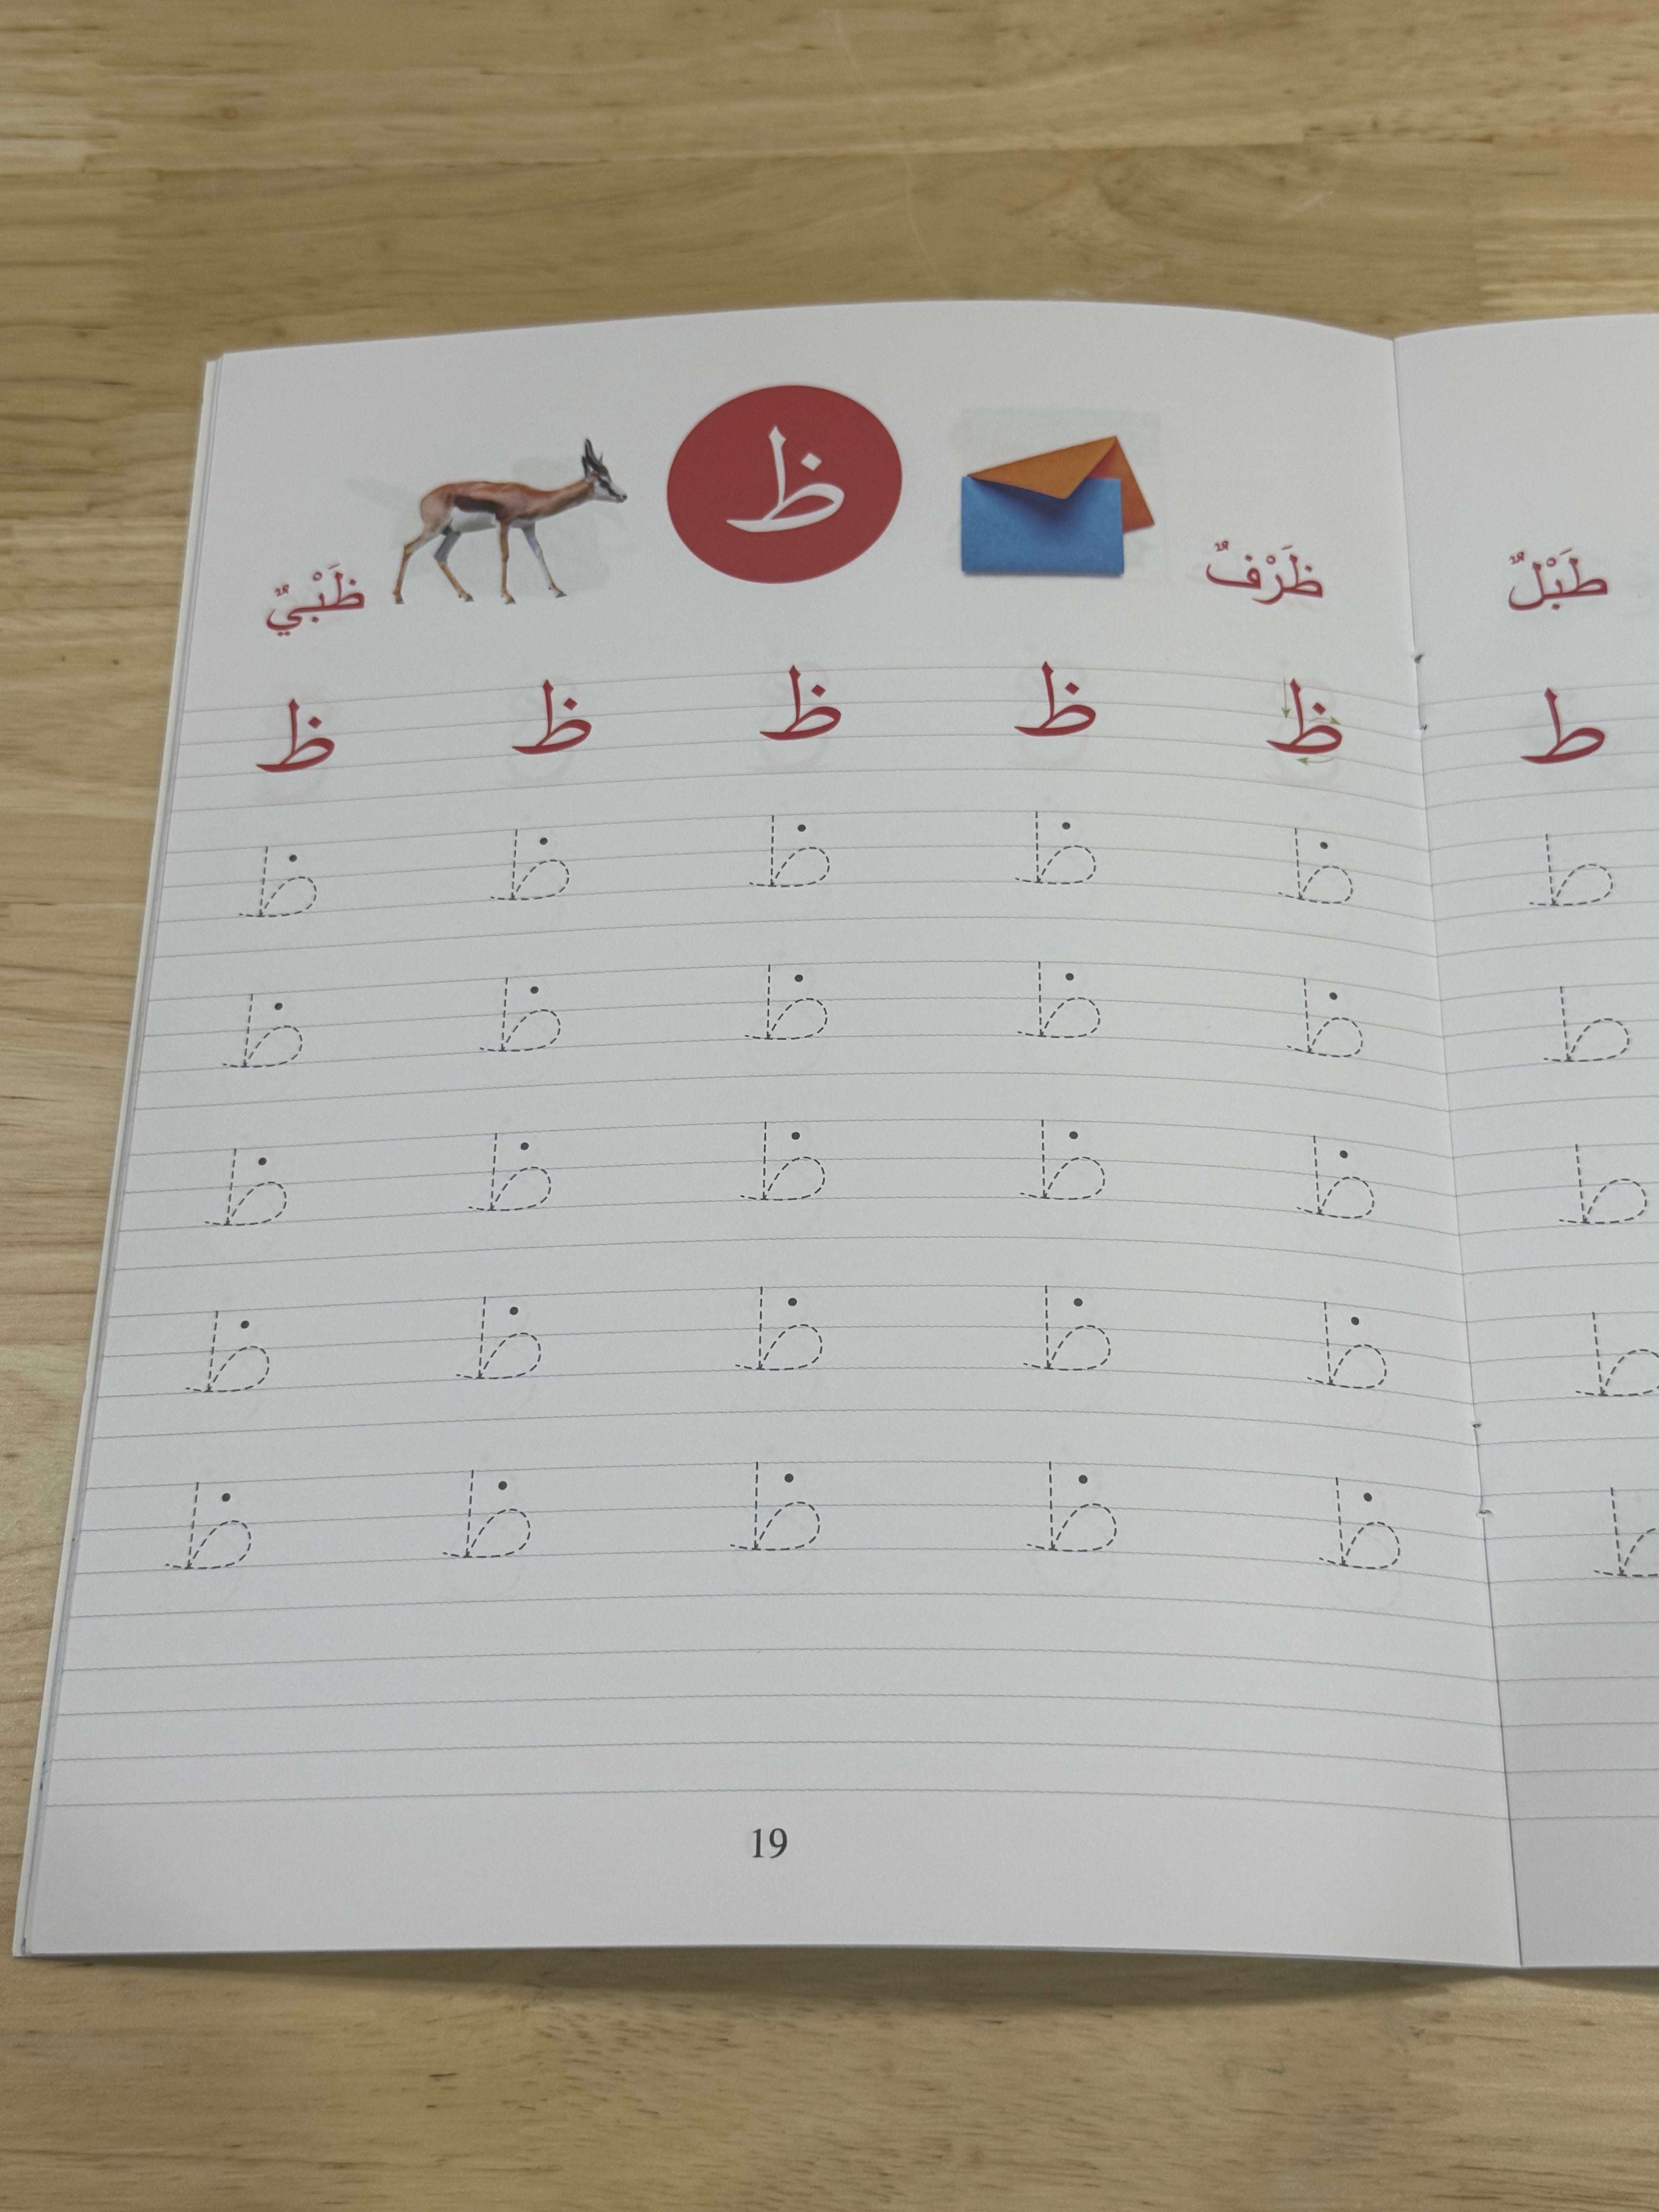 ظ
ظَرْفٌ ظَبْيٌ
ظ ظ ظ ظ ظ
ظ ظ ظ ظ ظ
ظ ظ ظ ظ ظ
ظ ظ ظ ظ ظ
ظ ظ ظ ظ ظ
ظ ظ ظ ظ ظ
19
طَبْلٌ
ط
ط
ط
ط
ط
ط